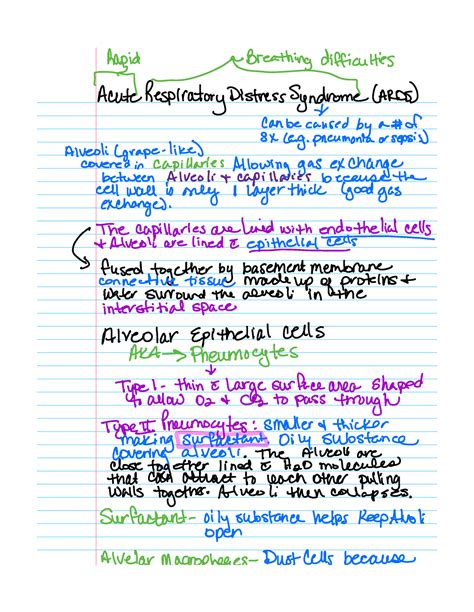 Rapid Breathing difficulties
Acute Respiratory Distress Syndrome (ARDS)
Can be caused by a # of
8x (e.g. pneumonia or sepsis)
Alveoli (grape-like)
covered in capillaries Allowing gas exchange
between Alveoli + capillaries because the
cell wall is only 1 layer thick (good gas
exchange).
The capillaries are lined with endothelial cells
+ Alveoli are lined c̄ epithelial cells
fused together by basement membrane
connective tissue made up of proteins +
water surround the alveoli in the
interstitial space
Alveolar Epithelial cells
AKA → Pneumocytes
Type I - thin c̄ large surface area shaped
to allow O2 & CO2 to pass through
Type II Pneumocytes: smaller & thicker
making surfactant. Oily substance
covering alveoli. The Alveoli are
close together lined c̄ H2O molecules
that attract to each other pulling
walls together. Alveoli then collapses.
Surfactant - oily substance helps keep
open
Dust Cells because